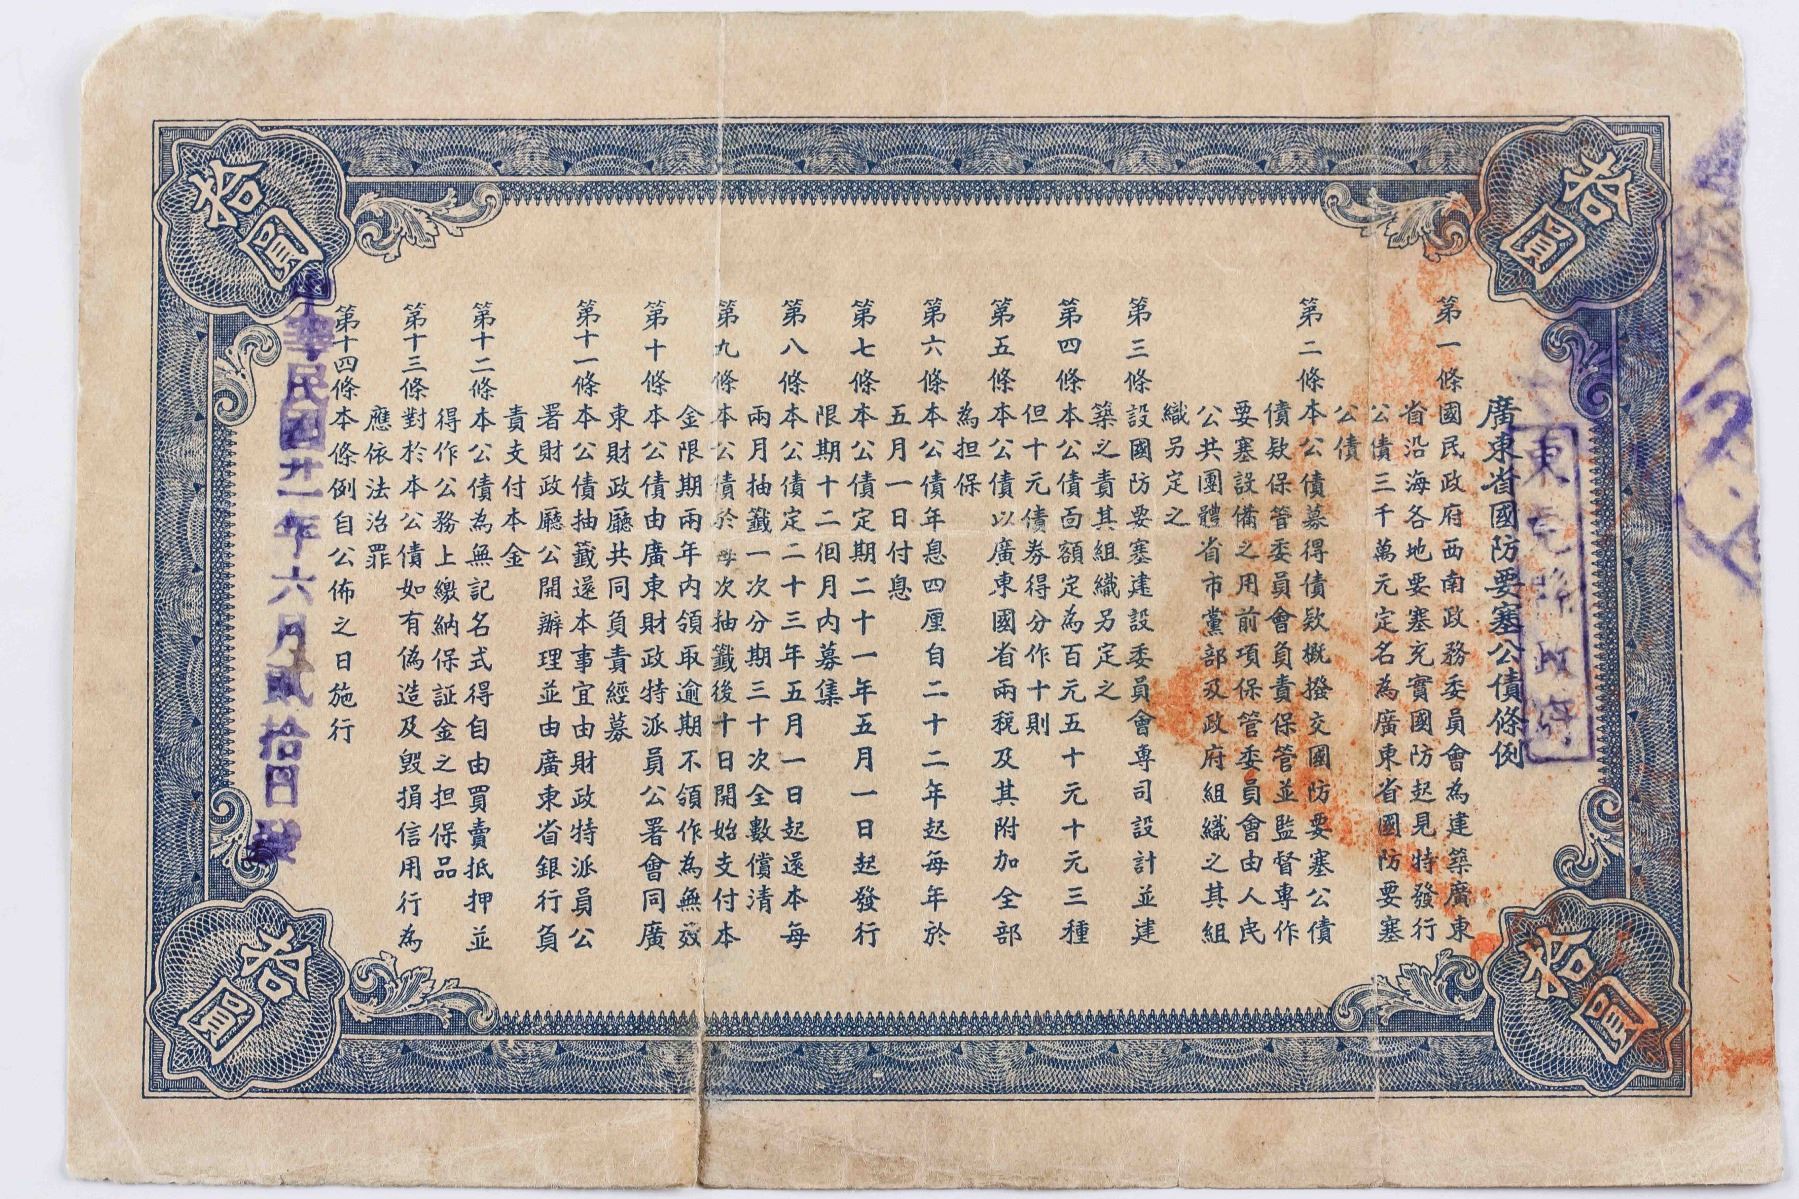 拾圓
拾圓
廣東省國防要塞公債條例
第一條國民政府西南政務委員會為建築廣東
省沿海各地要塞充實國防起見特發行
公債三千萬元定名為廣東省國防要塞
公債
第二條本公債募得債款概撥交國防要塞公債
債款保管委員會負責保管並監督專作
要塞設備之用前項保管委員會由人民
公共團體省市黨部及政府組織之其組
織另定之
第三條設國防要塞建設委員會專司設計並建
築之責其組織另定之
第四條本公債面額定為百元五十元十元三種
但十元債券得分作十則
第五條本公債以廣東國省兩稅及其附加全部
為担保
第六條本公債年息四厘自二十二年起每年於
五月一日付息
第七條本公債定期二十一年五月一日起發行
限期十二個月內募集
第八條本公債定二十三年五月一日起還本每
兩月抽籤一次分期三十次全數償清
第九條本公債於每次抽籤後十日開始支付本
金限期兩年內領取逾期不領作為無效
第十條本公債由廣東財政特派員公署會同廣
東財政廳共同負責經募
第十一條本公債抽籤還本事宜由財政特派員公
署財政廳公開辦理並由廣東省銀行負
責支付本金
第十二條本公債為無記名式得自由買賣抵押並
得作公務上繳納保証金之担保品
第十三條對於本公債如有偽造及毀損信用行為
應依法治罪
第十四條本條例自公佈之日施行
中華民國廿一年六月貳拾日發
東莞縣政府
拾圓
拾圓